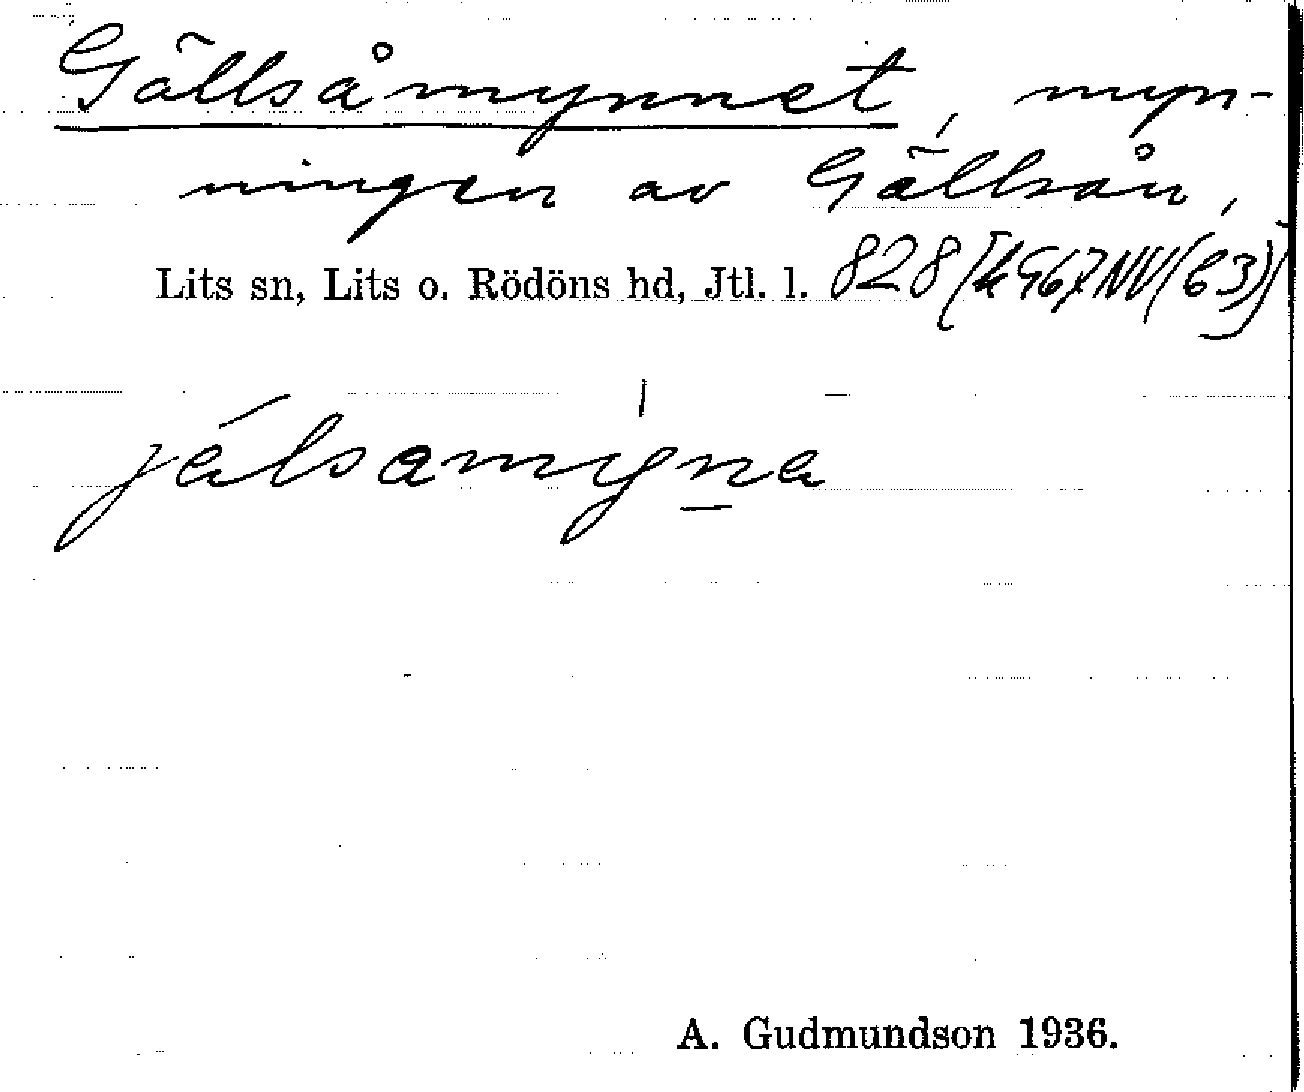 Gällsåmynnet, myn-
ningen av Gällsån,
Lits sn, Lits o. Rödöns hd, Jtl. l. 828
jälsamyna
A. Gudmundson 1936.